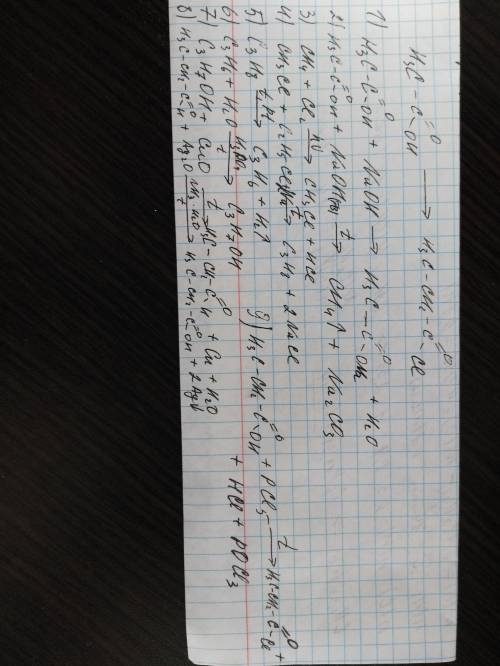 H₃C-C(=O)-OH ⟶ H₃C-CH₂-C(=O)-Cl
1) H₃C-C(=O)-OH + NaOH ⟶ H₃C-C(=O)-ONa + H₂O
2) H₃C-C(=O)-OH + NaOH ⟶(t) CH₄↑ + Na₂CO₃
3) CH₄ + Cl₂ ⟶(hν) CH₃Cl + HCl
4) CH₃Cl + C₂H₅Cl ⟶(t) C₃H₈ + 2NaCl
5) C₃H₈ ⟶(t, Pt) C₃H₆ + H₂↑
6) C₃H₆ + H₂O ⟶(H₃PO₄, t) C₃H₇OH
7) C₃H₇OH + CuO ⟶(t) H₃C-CH₂-C(=O)-H + Cu + H₂O
8) H₃C-CH₂-C(=O)-H + Ag₂O ⟶(NH₃·H₂O, t) H₃C-CH₂-C(=O)-OH + 2Ag↓
9) H₃C-CH₂-C(=O)-OH + PCl₅ ⟶(t) H₃C-CH₂-C(=O)-Cl +
+ HCl + POCl₃